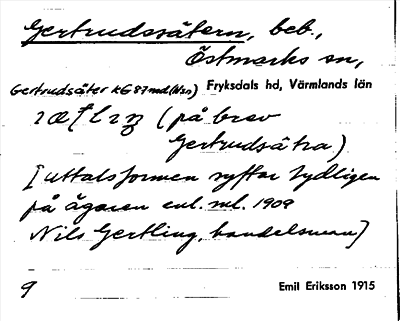 Gertrudssätern, beb.,
Östmarks sn,
Gertrudsäter KG 87 md (Nrn) Fryksdals hd, Värmlands län
(på brev
Gertrudsätra)
[Uttalsformen syftar tydligen
på ägaren enl. ml. 1909
Nils Gertling, handelsman]
9 Emil Eriksson 1915